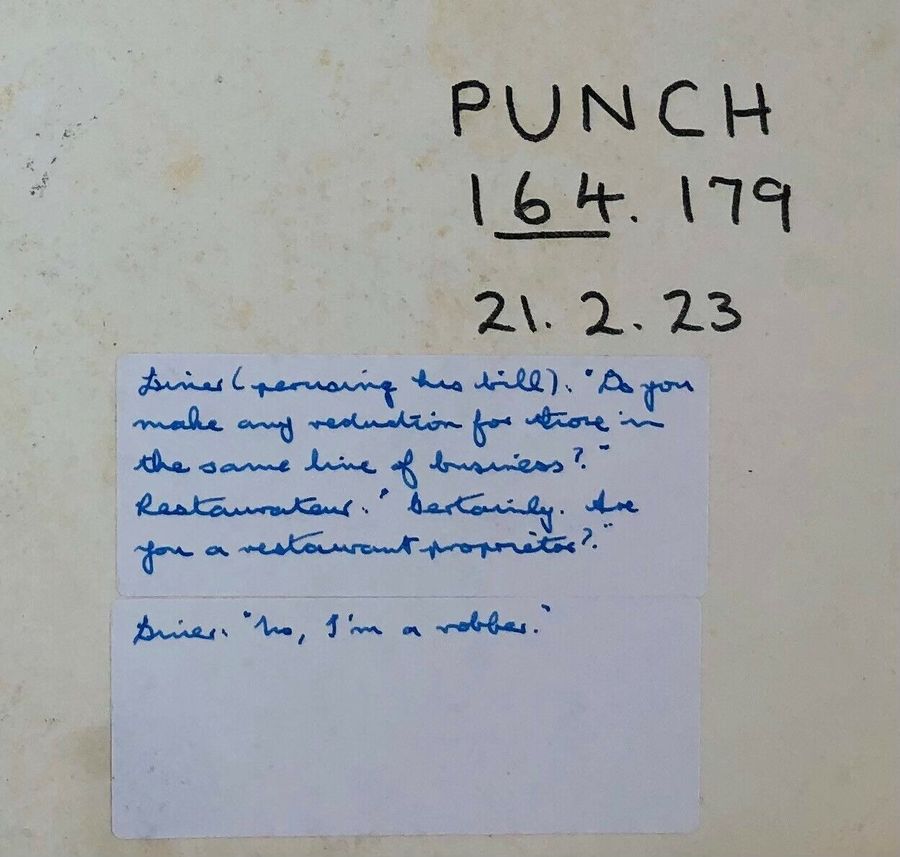 PUNCH
164. 179
21. 2. 23
Diner (perusing his bill). "Do you
make any reduction for those in
the same line of business?."
Restaurateur. "Certainly. Are
you a restaurant proprietor?."
Diner. "No, I'm a robber."